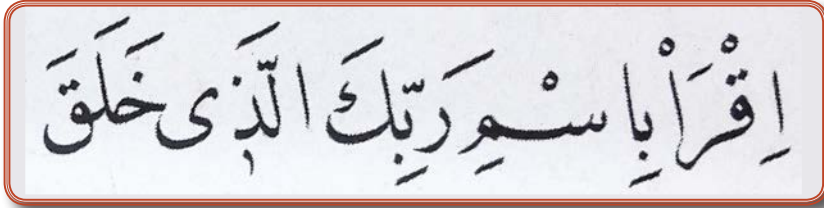 اِقْرَاْ بِاسْمِ رَبِّكَ الَّذٖى خَلَقَ